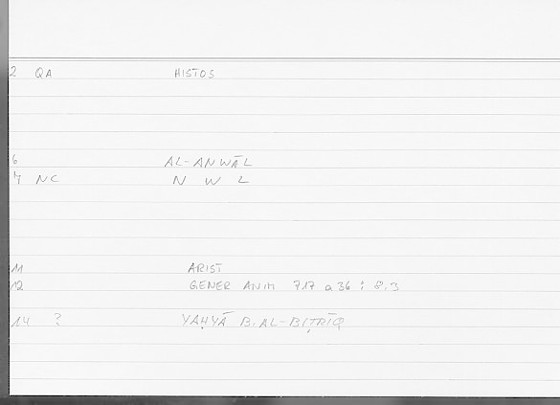 2 QA HISTOS
6 AL-ANWĀL
7 NC N W L
11 ARIST
12 GENER ANIM 717 a 36 ; 8.3
14 ? YAḤYĀ B. AL-BIṬRĪQ